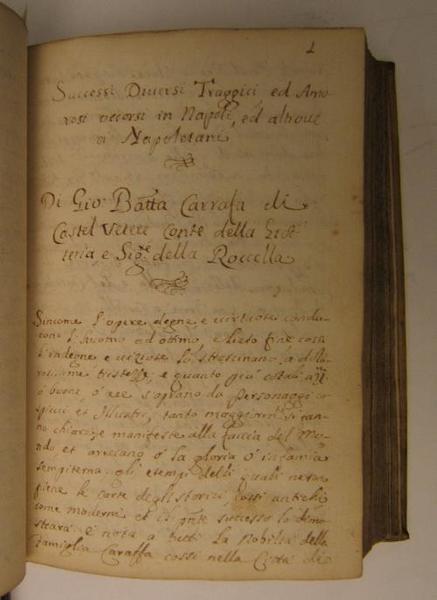 1
Successi Diuersi Traggici ed Amo
rosi occorsi in Napoli, ed altroue
a Napoletani
Di Gio: Batta Carrafa di
Castel Vetere Conte della Grot
teria, e Sig.re della Roccella
Sincome l'opere degne e uirtuose condu
cono l'huomo ad ottimo, e lieto fine cosi
l'indegne e uiziose lo strascinano a
e quanto piu cotali
ò buone, ò ree s'oprano da Personaggi co
spicui et Illustri, tanto maggiorm.te si ran
no chiare, e manifeste alla faccia del Mo
ndo, et arrecano ò la gloria ò infamia
sempiterna gli esempi delli quali ne sono
piene le carte degli storici cossi antichi
come moderni et il p̃nte successo lo dimo
strarà è nota a tutti la Nobiltà della
Famiglia Caraffa cossi nella Città di